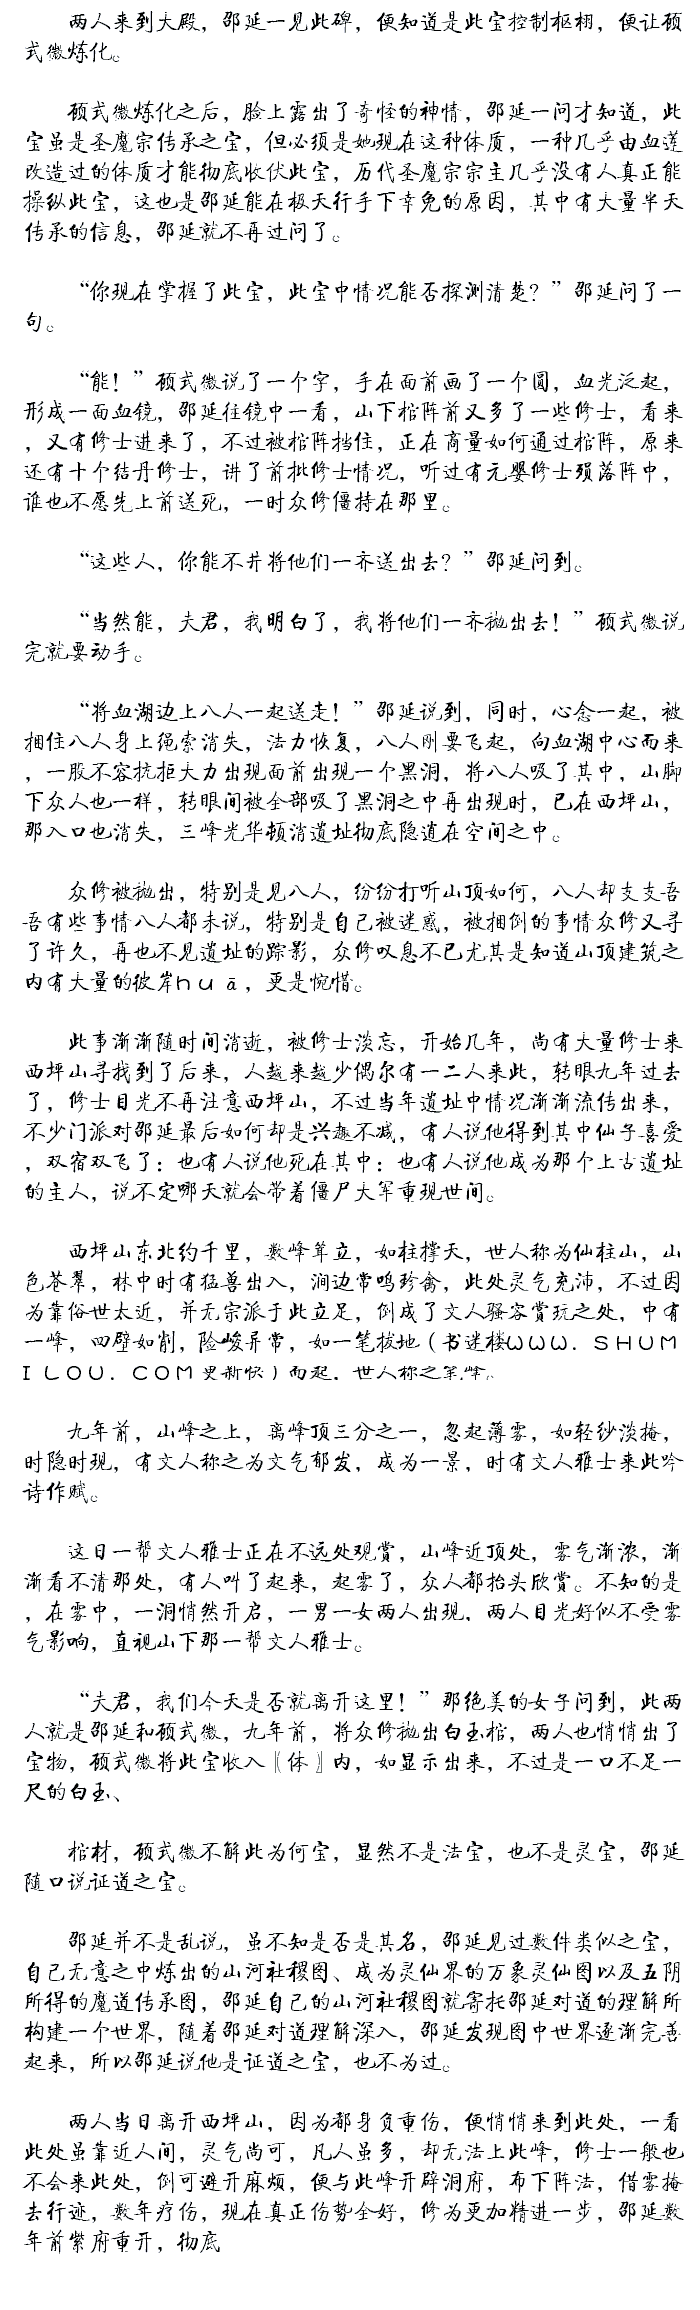 两人来到大殿，邵延一见此碑，便知道是此宝控制枢栩，便让硕
式微炼化。
硕式微炼化之后，脸上露出了奇怪的神情，邵延一问才知道，此
宝虽是圣魔宗传承之宝，但必须是她现在这种体质，一种几乎由血莲
改造过的体质才能彻底收伏此宝，历代圣魔宗宗主几乎没有人真正能
操纵此宝，这也是邵延能在极天行手下幸免的原因，其中有大量半天
传承的信息，邵延就不再过问了。
“你现在掌握了此宝，此宝中情况能否探测清楚？”邵延问了一
句。
“能！”硕式微说了一个字，手在面前画了一个圆，血光泛起，
形成一面血镜，邵延往镜中一看，山下棺阵前又多了一些修士，看来
，又有修士进来了，不过被棺阵挡住，正在商量如何通过棺阵，原来
还有十个结丹修士，讲了前批修士情况，听过有元婴修士殒落阵中，
谁也不愿先上前送死，一时众修僵持在那里。
“这些人，你能不井将他们一齐送出去？”邵延问到。
“当然能，夫君，我明白了，我将他们一齐抛出去！”硕式微说
完就要动手。
“将血湖边上八人一起送走！”邵延说到，同时，心念一起，被
捆住八人身上绳索消失，法力恢复，八人刚要飞起，向血湖中心而来
，一股不容抗拒大力出现面前出现一个黑洞，将八人吸了其中，山脚
下众人也一样，转眼间被全部吸了黑洞之中再出现时，已在西坪山，
那入口也消失，三峰光华顿消遗址彻底隐遁在空间之中。
众修被抛出，特别是见八人，纷纷打听山顶如何，八人却支支吾
吾有些事情八人都未说，特别是自己被迷惑，被捆倒的事情众修又寻
了许久，再也不见遗址的踪影，众修叹息不已尤其是知道山顶建筑之
内有大量的彼岸huā，更是惋惜。
此事渐渐随时间消逝，被修士淡忘，开始几年，尚有大量修士来
西坪山寻找到了后来，人越来越少偶尔有一二人来此，转眼九年过去
了，修士目光不再注意西坪山，不过当年遗址中情况渐渐流传出来，
不少门派对邵延最后如何却是兴趣不减，有人说他得到其中仙子喜爱
，双宿双飞了：也有人说他死在其中：也有人说他成为那个上古遗址
的主人，说不定哪天就会带着僵尸大军重现世间。
西坪山东北约千里，数峰耸立，如柱撑天，世人称为仙柱山，山
色苍翠，林中时有猛兽出入，涧边常鸣珍禽，此处灵气充沛，不过因
为靠俗世太近，并无宗派于此立足，倒成了文人骚客赏玩之处，中有
一峰，四壁如削，险峻异常，如一笔拔地（书迷楼WWW．SHUM
ILOU．COM更新快）而起，世人称之笔峰。
九年前，山峰之上，离峰顶三分之一，忽起薄雾，如轻纱淡掩，
时隐时现，有文人称之为文气郁发，成为一景，时有文人雅士来此吟
诗作赋。
这日一帮文人雅士正在不远处观赏，山峰近顶处，雾气渐浓，渐
渐看不清那处，有人叫了起来，起雾了，众人都抬头欣赏。不知的是
，在雾中，一洞悄然开启，一男一女两人出现，两人目光好似不受雾
气影响，直视山下那一帮文人雅士。
“夫君，我们今天是否就离开这里！”那绝美的女子问到，此两
人就是邵延和硕式微，九年前，将众修抛出白玉棺，两人也悄悄出了
宝物，硕式微将此宝收入〖体〗内，如显示出来，不过是一口不足一
尺的白玉、
棺材，硕式微不解此为何宝，显然不是法宝，也不是灵宝，邵延
随口说证道之宝。
邵延并不是乱说，虽不知是否是其名，邵延见过数件类似之宝，
自己无意之中炼出的山河社稷图、成为灵仙界的万象灵仙图以及五阴
所得的魔道传承图，邵延自己的山河社稷图就寄托邵延对道的理解所
构建一个世界，随着邵延对道理解深入，邵延发现图中世界逐渐完善
起来，所以邵延说他是证道之宝，也不为过。
两人当日离开西坪山，因为都身负重伤，便悄悄来到此处，一看
此处虽靠近人间，灵气尚可，凡人虽多，却无法上此峰，修士一般也
不会来此处，倒可避开麻烦，便与此峰开辟洞府，布下阵法，借雾掩
去行迹，数年疗伤，现在真正伤势全好，修为更加精进一步，邵延数
年前紫府重开，彻底